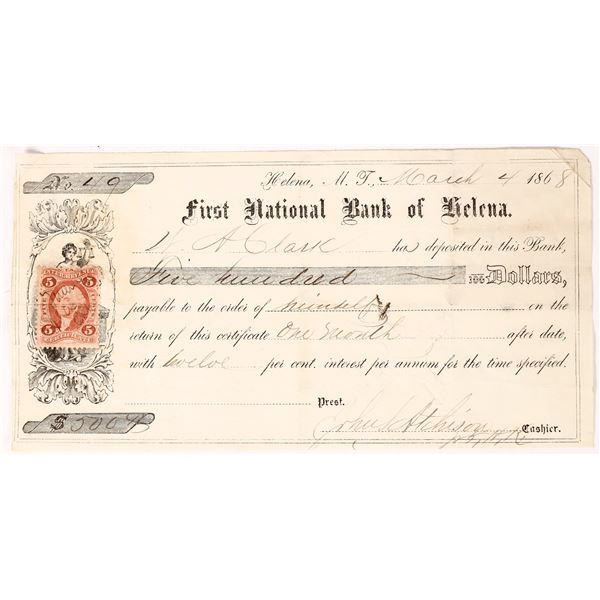 No. 49
Helena, M. T., March 4 1868
First National Bank of Helena.
W. A. Clark has deposited in this Bank,
Five hundred 100 Dollars,
payable to the order of himself on the
return of this certificate One month after date,
with twelve per cent. interest per annum for the time specified.
Prest.
$500
John S Atchison Cashier.
5 5
5 5
CERTIFICATE